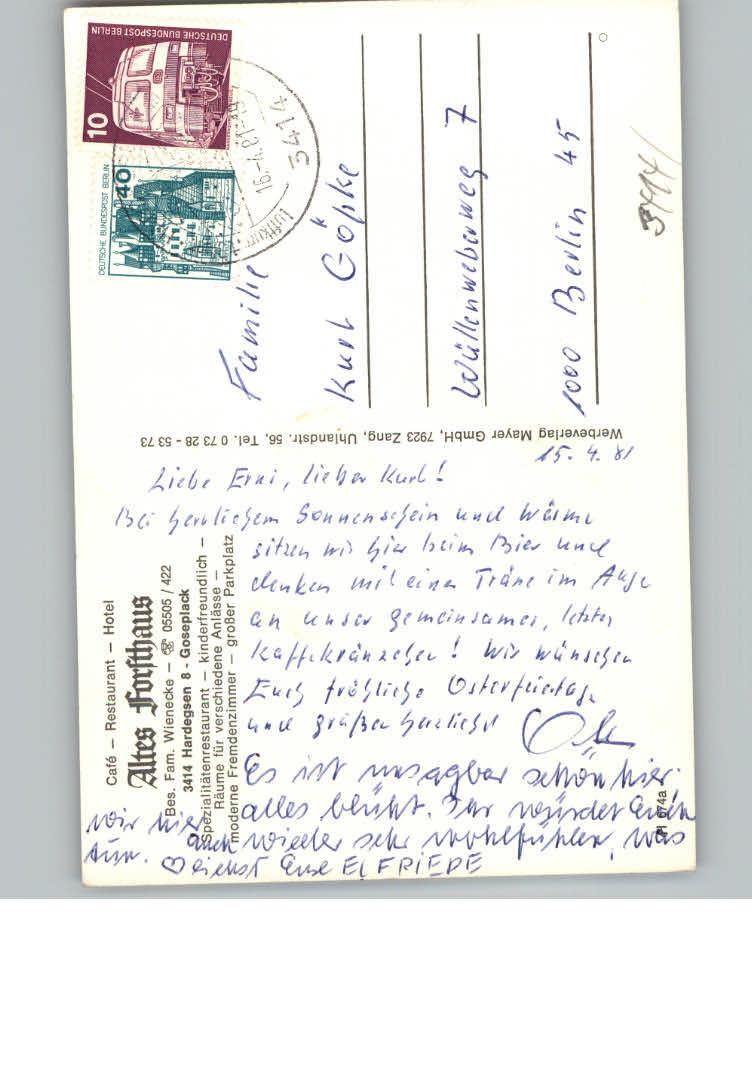 Café – Restaurant – Hotel
Altes Forsthaus
Bes. Fam. Wienecke – ☏ 05505 / 422
3414 Hardegsen 8 - Goseplack
Spezialitätenrestaurant – kinderfreundlich –
Räume für verschiedene Anlässe –
moderne Fremdenzimmer – großer Parkplatz
15. 4. 81
Liebe Erni, lieber Kurt!
Bei herrlichem Sonnenschein und Wärme
sitzen wir hier beim Bier und
denken mit einer Träne im Auge
an unser gemeinsames, letztes
Kaffekränzchen! Wir wünschen
Euch fröhliche Osterfeiertage
und grüßen herzlichst
Es ist unsagbar schön hier.
alles blüht. Ihr würdet Euch
wieder sehr wohlfühlen, was
wir hier auch
tun. ♡ lichst Eure ELFRIEDE
PI 674a
Werbeverlag Mayer GmbH, 7923 Zang, Uhlandstr. 56, Tel. 0 73 28 - 53 73
DEUTSCHE BUNDESPOST BERLIN
10
DEUTSCHE BUNDESPOST BERLIN
40
3414
16.-4.81-
Familie
Kurt Göpke
Wüllenweberweg 7
1000 Berlin 45
3414/